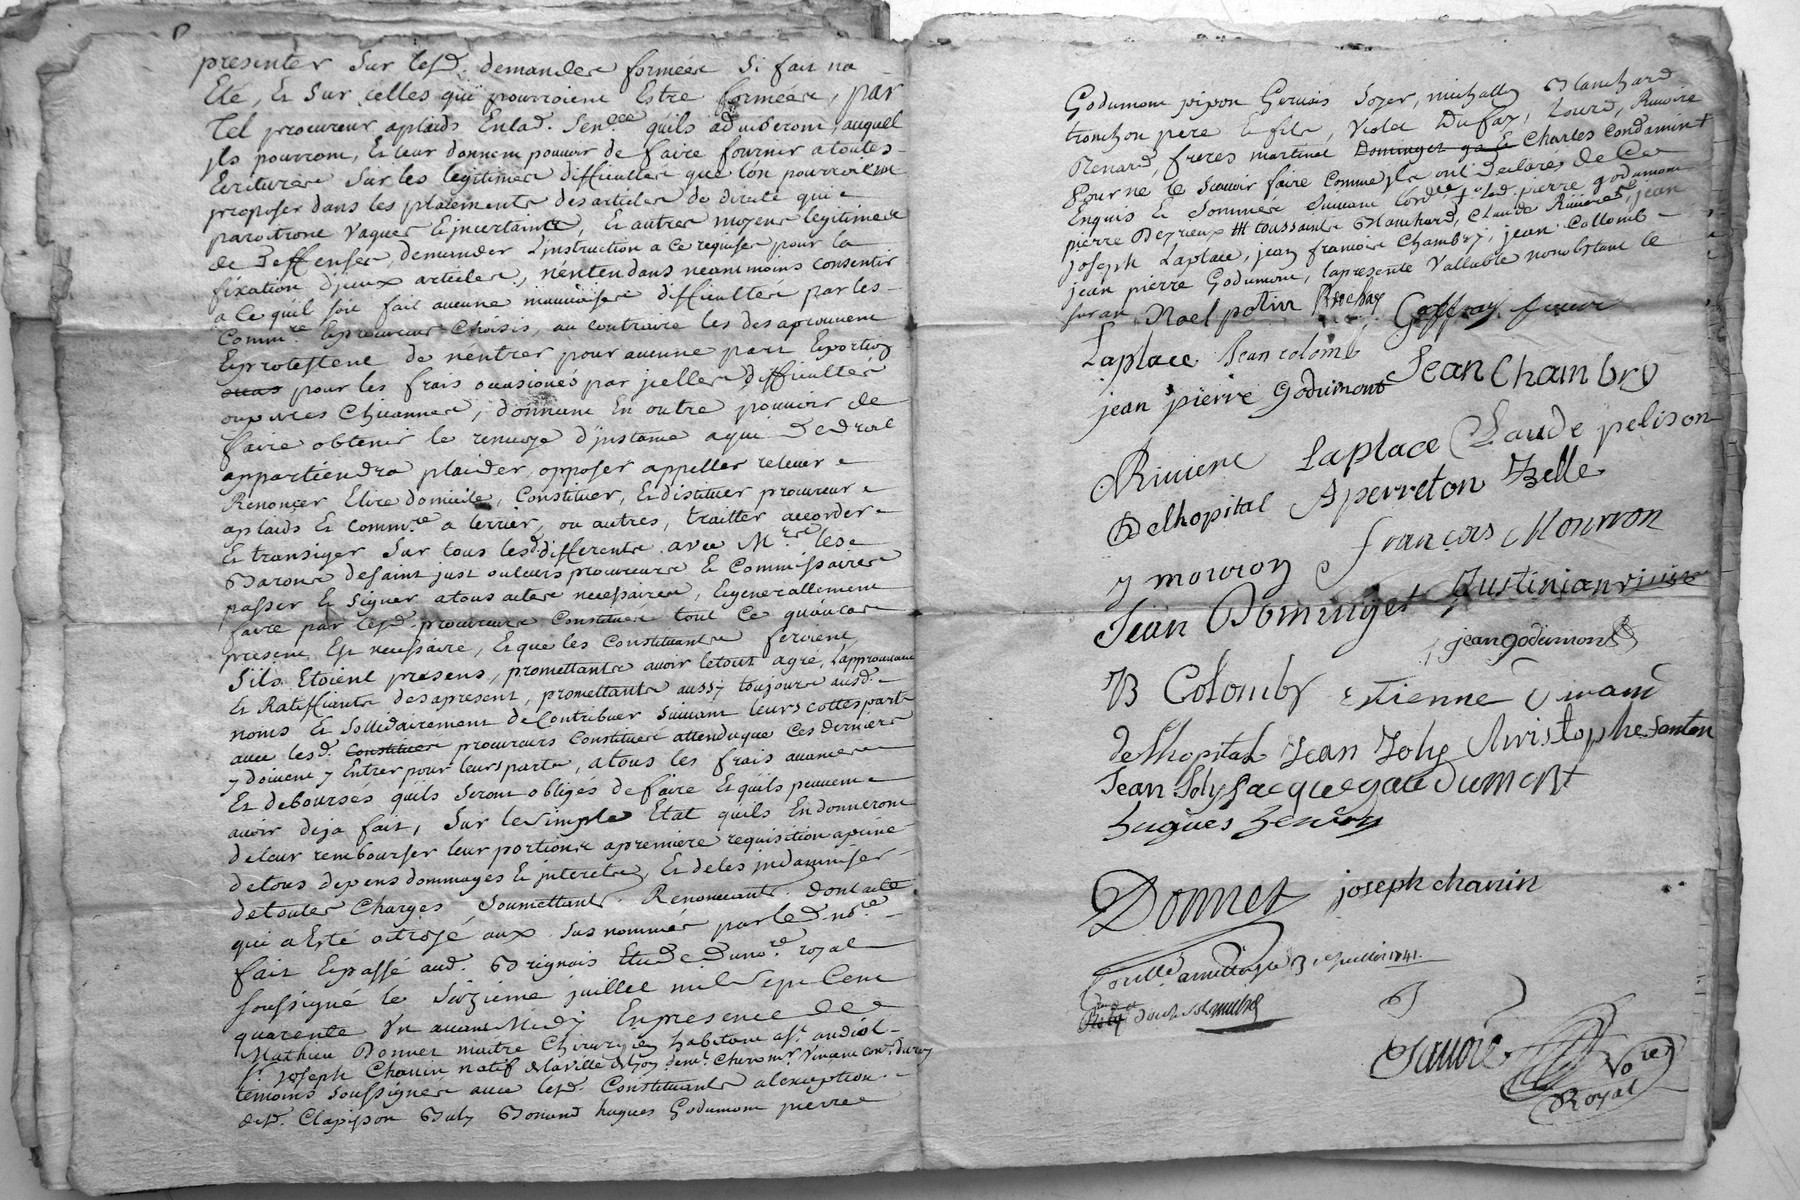 presenter sur lesd. demandes formées si fait na
Eté, Et sur celles qui pourroient Estre formées, par
Tel procureur aplaids Enlad. Sen.ccé quils adviseront, auquel
jls pourront, Et leur donnent pouvoir de faire fournir atoutes
Ecritures sur les legitimes difficultes que lon pourroient
proposer dans les plaiements des articles de directe qui
paroitront vagues Et jncertaints, Et autres moyens legitimes
de deffenses, demander Linstruction a ce requise pour la
fixation djceux articles, nentendans neantmoins consentir
a ce quil soit fait aucune mauvaises difficultés par les
Comm.re Et procureurs Choisis, au contraire les desaprouvent
Et protestent de nentrer pour aucune part Et portion
pour les frais ocasionés par jcelles difficultés
oupures Chicannes, donnent En outre pouvoir de
faire obtenir le renvoye djnstance aqui De droit
appartiendra plaider, opposer appeller relever
Renoncer Elire domicile, Constituer, Et distituer procureur
aplaids Et comm.re a terrier, ou autres, traitter accorder
Et transiger sur tous lesd. differents avec M.rs les
Barons desaint just ouleurs procureurs Et Commissaires
passer Et signer atous actes necessaires, Et generallement
faire par lesd. procureurs Constitués tout Ce quaucas
present Est necessaire, Et que les Constituants feroient
Sils Etoient presens, promettants avoir letout agré, L'approuvant
Et Ratiffiants desapresent, promettants aussy toujours ausd.
noms Et sollidairement de Contribuer suivant leurs cottes parts
avec lesd. Constitues procureurs Constitués attenduque ces derniers
y doivent y Entrer pour leurs parts, atous les frais avances
Et deboursés quils seront obligés defaire Et quils peuvent
avoir deja fait, sur le simple Etat quils En donneront
deleur rembourser leur portions apremiere requisition apeine
detous depens dommages Et interets, Et deles jndamniser
detoutes Charges, Soumettants Renonceants. Dont acte
qui a Esté octroyé aux susnommés par led. no.re
fait Et passé aud. Brignais Etude dud no.re royal
soussigné le sixieme juillet mil sept Cent
quarente Un avant Midy En presence de
Mathieu Donnet maitre Chirurgien habitant
s.r Joseph Chanin natif delaville delyon
temoins soussignés avec lesd. Constituants alexception
desd. Clapisson Baly Bonand hugues Godumont pierre
Godumont pipon Gervais Soyer, michally Blanchard
tronchon pere Et fils, Violet Dufay, Rivoire
Renard, freres martinat Dominget Charles Condamint
pour ne le scavoir faire comme jls ont declares de Ce
Enquis Et sommés suivant Lord.ce lesd. pierre godumont
pierre Deyrieux toussaint Blanchard, Claude Riviere, jean
Joseph Laplace, jean francois Chambry, jean Collomb
jean pierre Godumont, lapresente Vallable nonobstant le
suran Noel potin Brochay Goffray
Laplace Jean colomb
jean pierre godumont Jean Chambry
Riviere Laplace Claude pelison
Delhopital Aperreton Belle
J mouron francois Mourron
Jean Dominget Justinian
jean godumont
B Colomby Etienne Vivand
delhopital Jean Joly Christophe
Jean Joly Jacque gaudumont
hugues
Donnet joseph chanin
juillet 1741.
Royal